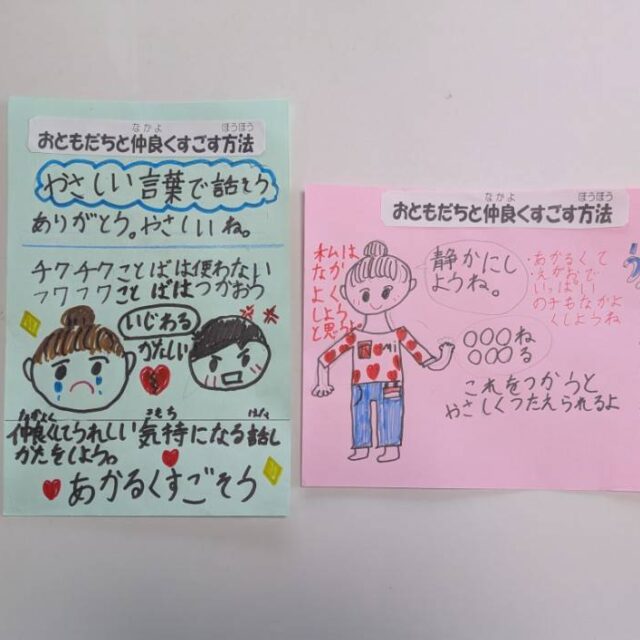 なかよ ほうほう
おともだちと仲良くすごす方法
やさしい言葉で話そう
ありがとう。やさしいね。
チクチクことばは使わない
フワフワことばはつかおう
いじわる
かなしい
なかよく きもち はな
仲良くしてうれしい気持になる話し
かたをしよう。
あかるくすごそう
なかよ ほうほう
おともだちと仲良くすごす方法
私は
なか
よく
しよう
と思うよ
静かにし
ようね。
・あかるくて
・えがおで
いっぱい
のチもなかよ
くしようね
○○○ね
○○○る
これをつかうと
やさしくつたえられるよ